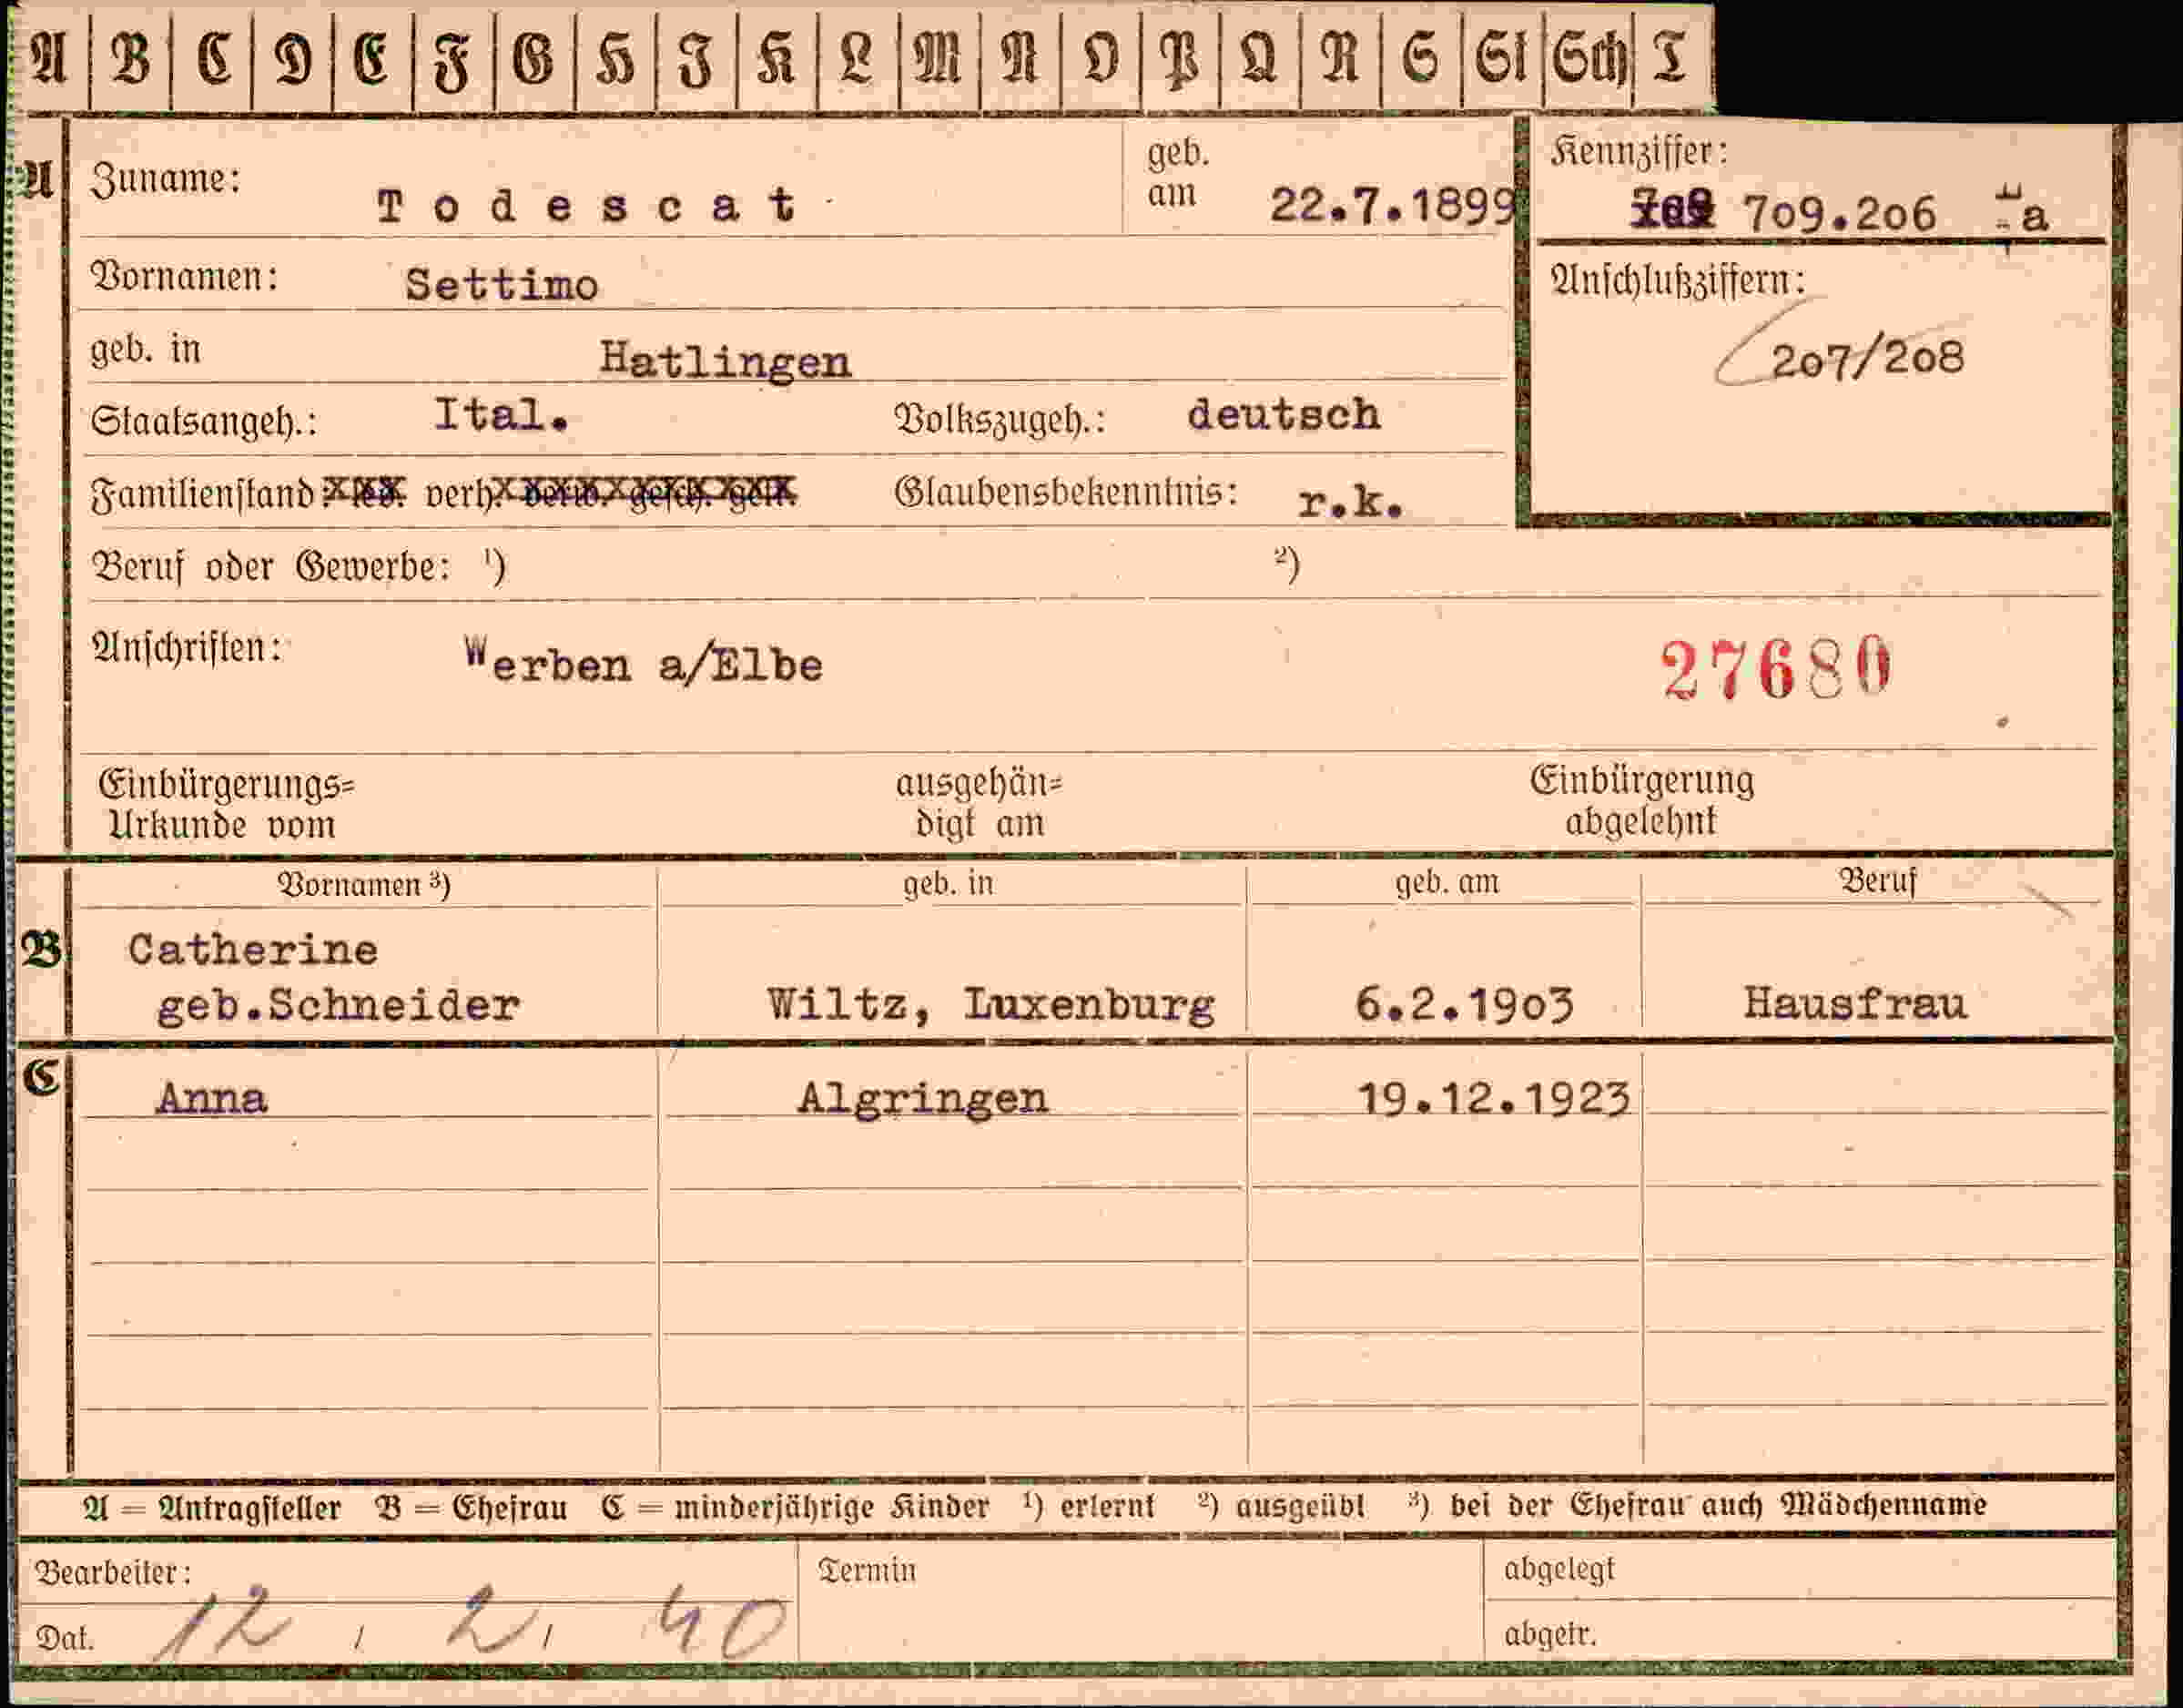 A B C D E F G H I K L M N O P Q R S St Sch T
A Zuname: Todescat geb. am 22.7.1899
Kennziffer: 709.206 a
Vornamen: Settimo
Anschlußziffern:
207/208
geb. in Hatlingen
Staatsangeh.: Ital. Volkszugeh.: deutsch
Familienstand: led. verh. verw. gesch. getr. Glaubensbekenntnis: r.k.
Beruf oder Gewerbe: ¹) ²)
Anschriften: Werben a/Elbe 27680
Einbürgerungs= ausgehän= Einbürgerung
Urkunde vom digt am abgelehnt
Vornamen ³) geb. in geb. am Beruf
B Catherine
geb.Schneider Wiltz, Luxenburg 6.2.1903 Hausfrau
C Anna Algringen 19.12.1923
A = Antragsteller B = Ehefrau C = minderjährige Kinder ¹) erlernt ²) ausgeübt ³) bei der Ehefrau auch Mädchenname
Bearbeiter: Termin abgelegt
Dat. 12. 2. 40 abgetr.